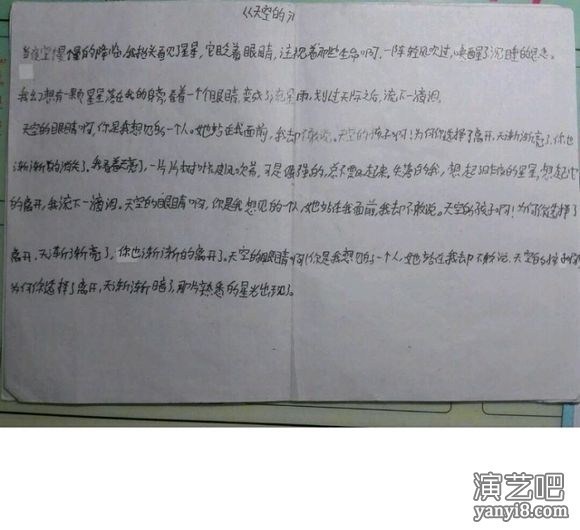 《天空的
当夜空慢慢的降临,我抬头看见了星星,它眨着眼睛,注视着那些生命啊,一阵轻风吹过,唤醒了沉睡的思念。
我幻想有一颗星星落在我的身旁,看着一个个眼睛,变成了流星雨,划过天际之后,流下一滴泪。
天空的眼睛啊,你是我想见的一个人。她站在我面前,我却不敢说。天空的孩子啊!为何你选择了离开,天渐渐亮了,你也
渐渐散的消失了。我看着天亮了,一片片树叶被风吹着,可是倔强的,总不要飞起来。失落的我,想起那夜的星星,想起你
的离开,我流下一滴泪。天空的眼睛啊,你是我想见的一个人,她站在我面前,我却不敢说。天空的孩子啊!为何你选择了
离开,天渐渐亮了,你也渐渐的离开了。天空的眼睛啊!你是我想见的一个人,她站在我却不敢说,天空的孩子
为何你选择了离开,天渐渐暗了,那片熟悉的星光出现了。
演艺吧
yanyi8.com